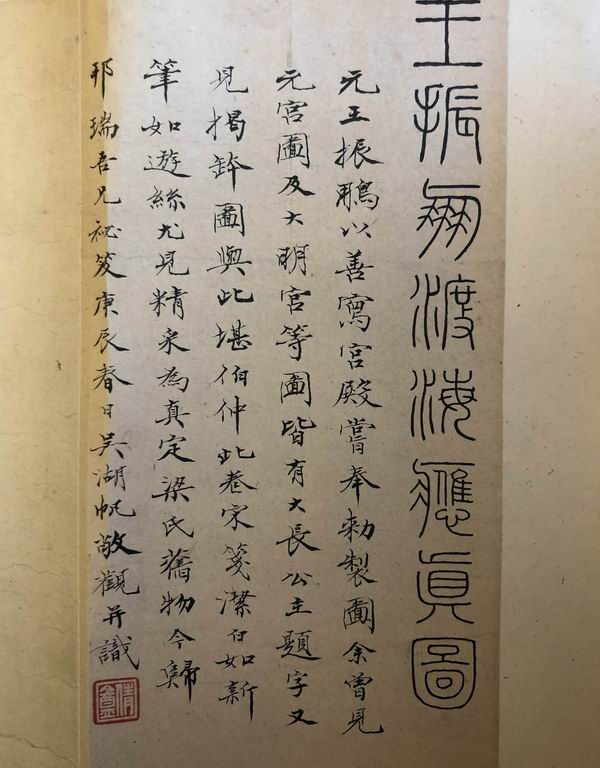 王振鵬渡海應真圖
元王振鵬以善寫宮殿嘗奉勅製圖余曾見
元宮圖及大明宮等圖皆有大長公主題字又
見揭鉢圖與此堪伯仲此卷宋箋潔白如新
筆如遊絲尤見精采為真定梁氏舊物今歸
邦瑞吾兄祕笈庚辰春日吳湖帆敬觀并識
倩盦